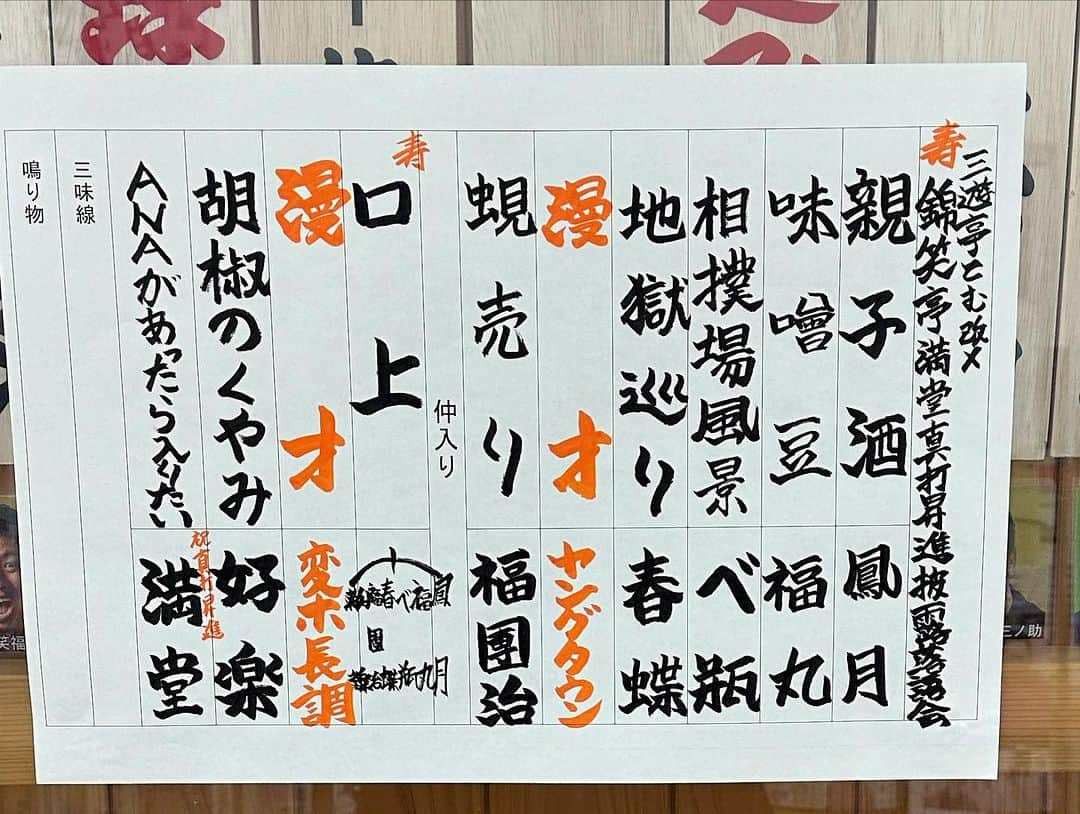 寿
三遊亭とむ改メ
錦笑亭満堂真打昇進披露落語会
親子酒 鳳月
味噌豆 福丸
相撲場風景 べ瓶
地獄巡り 春蝶
漫才 ヤングタウン
蜆売り 福團治
仲入り
寿
口上
漫才 変ホ長調
胡椒のくやみ 好楽
祝真打昇進
ANAがあったら入りたい 満堂
三味線
鳴り物
笑福
三ノ助